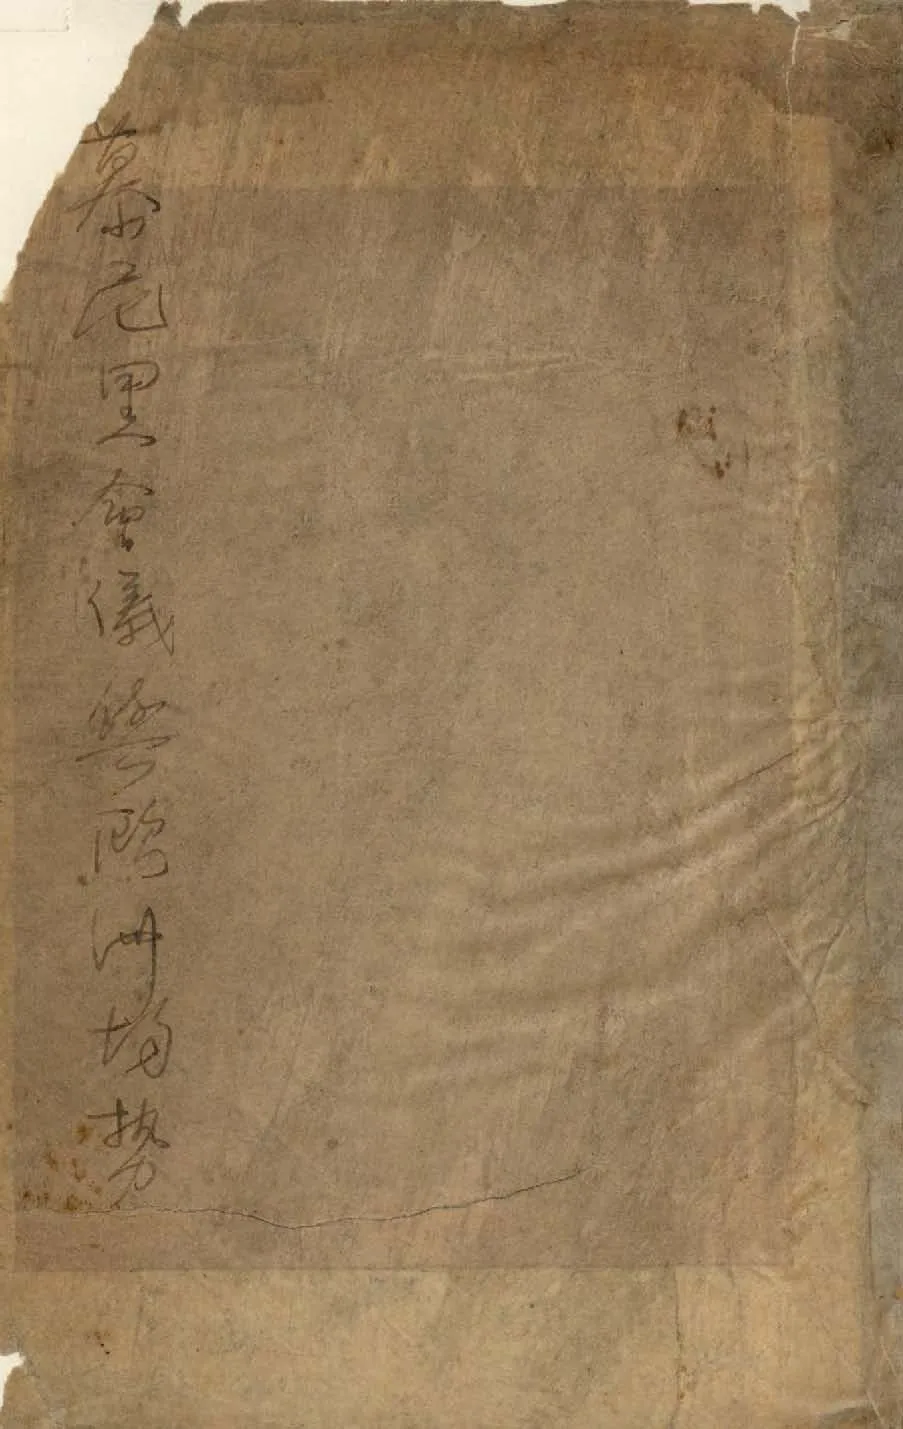 慕尼黑會議與歐洲場勢